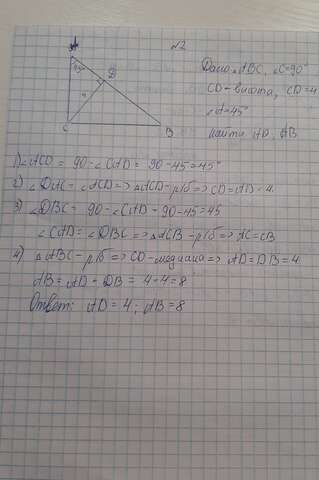 №2
A
45°
D
4
C
B
Дано: △ABC, ∠C=90°
CD - висота, CD=4
∠A=45°
Найти: AD, AB
1) ∠ACD = 90-∠CAD = 90-45=45°
2) ∠DAC = ∠ACD => △ACD - р/б => CD=AD=4
3) ∠DBC = 90-∠CAD = 90-45=45
∠CAD = ∠DBC => △ACB - р/б => AC=CB
4) △ABC - р/б => CD - медиана => AD=DB=4
AB=AD+DB = 4+4=8
Ответ: AD=4; AB=8